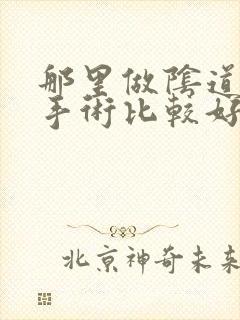 那里做陰道
手術比較好
北京神奇未来